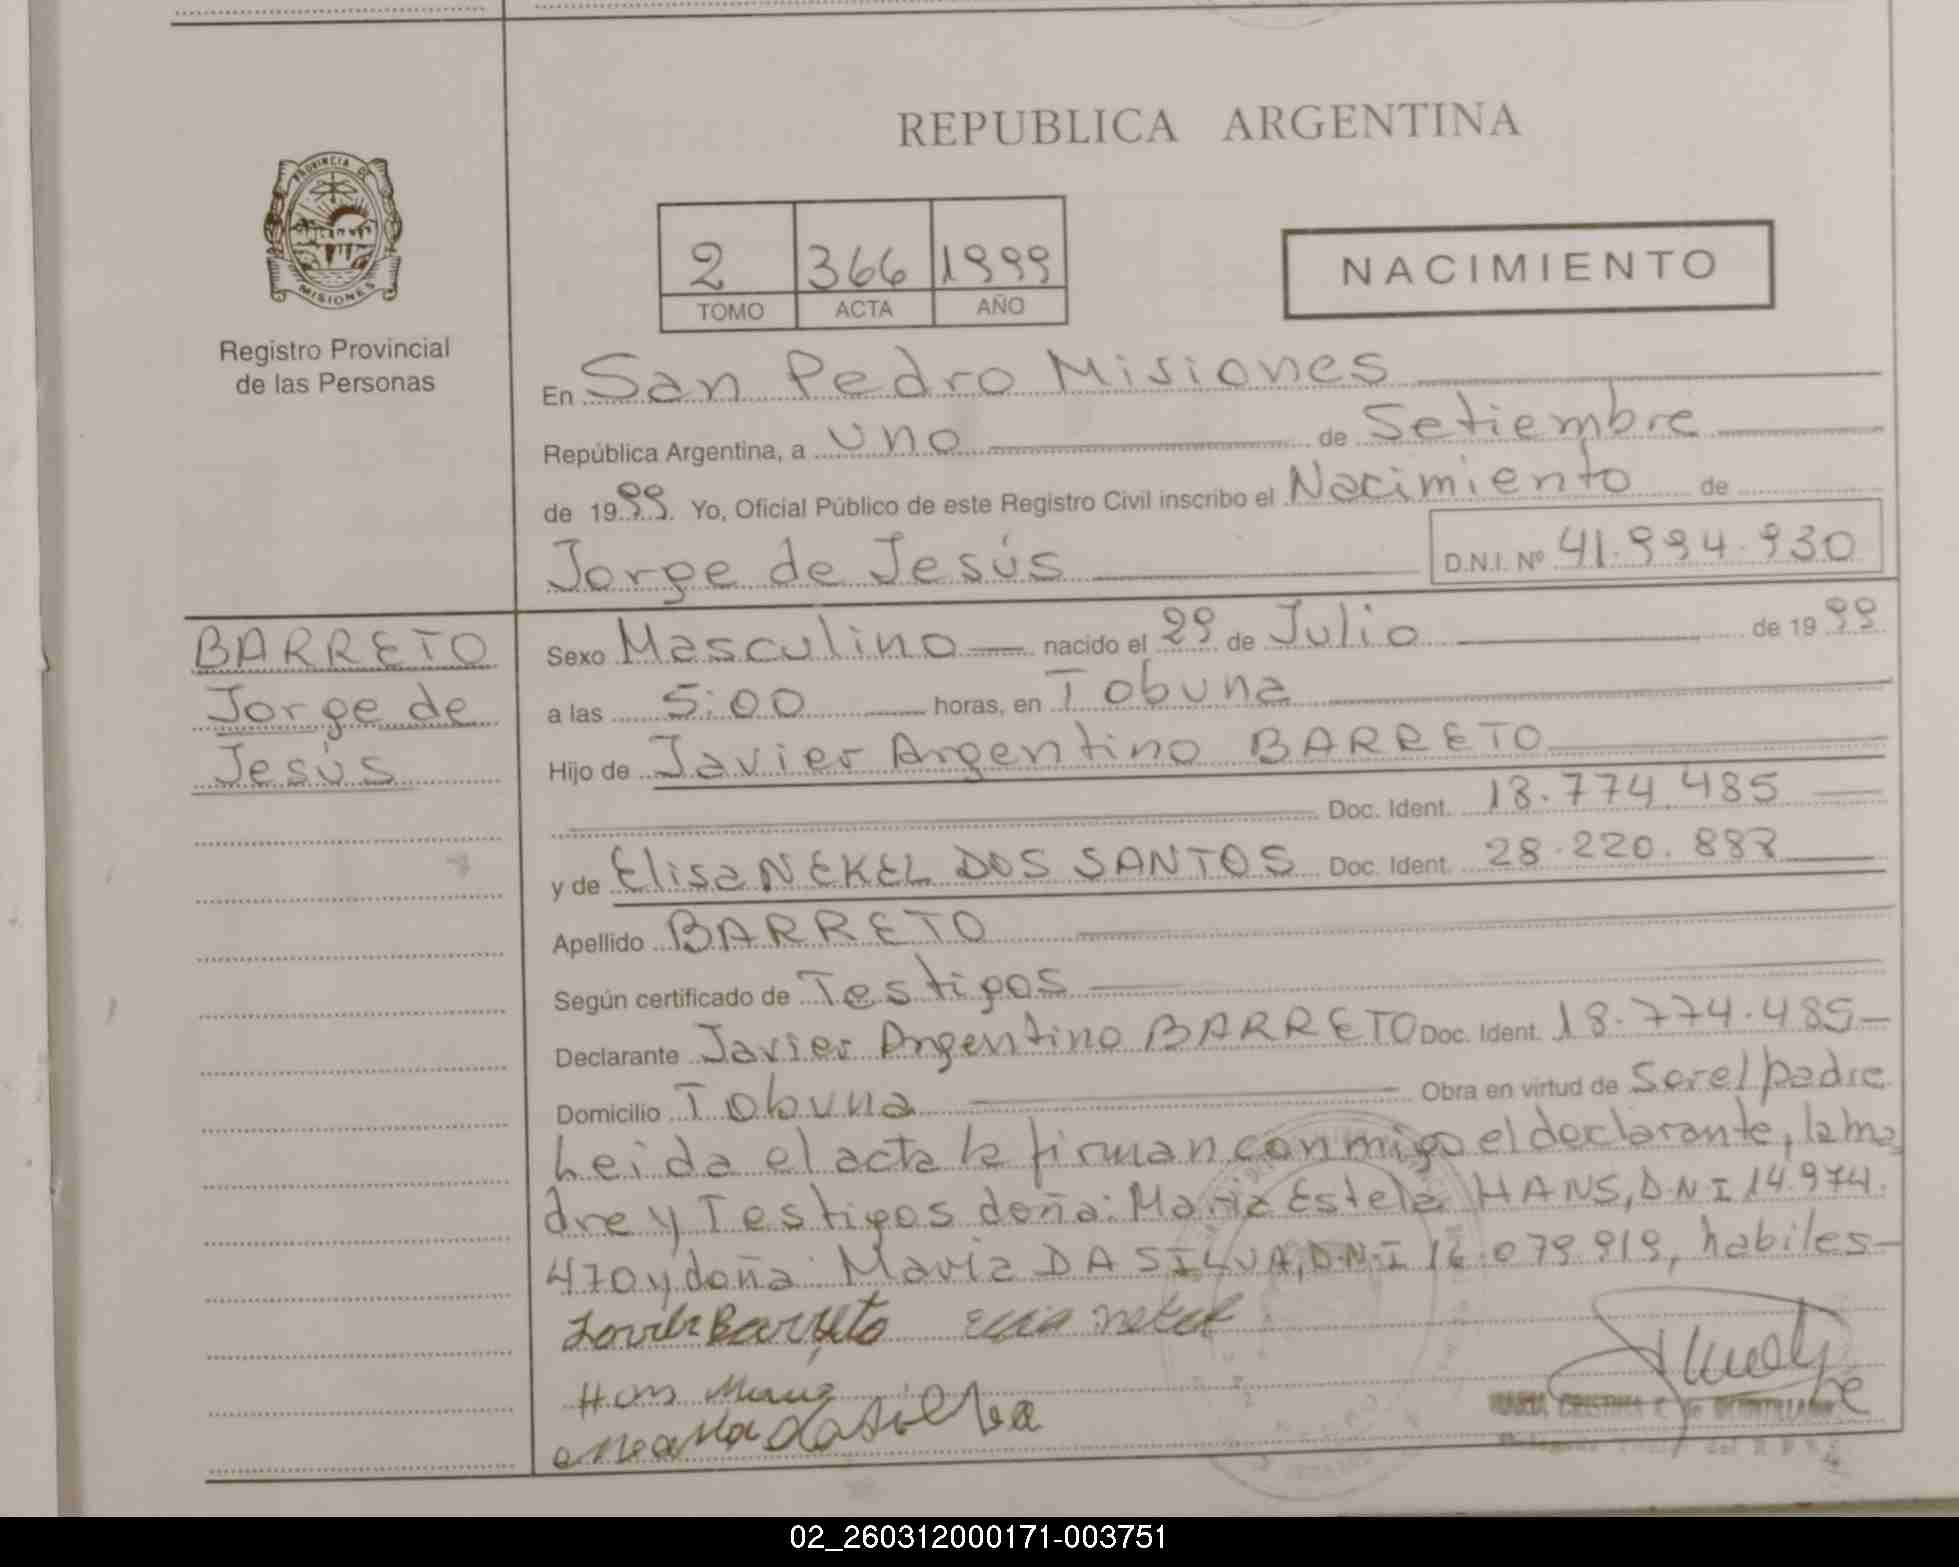 REPUBLICA ARGENTINA
PROVINCIA DE
MISIONES
Registro Provincial
de las Personas
2 366 1999
TOMO ACTA AÑO
NACIMIENTO
En San Pedro Misiones
República Argentina, a uno de Setiembre
de 1999. Yo, Oficial Público de este Registro Civil inscribo el Nacimiento de
Jorge de Jesús D.N.I. Nº 41.994.930
BARRETO
Jorge de
Jesús
Sexo Masculino nacido el 29 de Julio de 1999
a las 5:00 horas, en Tobuna
Hijo de Javier Argentino BARRETO
Doc. Ident. 18.774.485
y de Elisa NEKEL DOS SANTOS Doc. Ident. 28.220.888
Apellido BARRETO
Según certificado de Testigos
Declarante Javier Argentino BARRETO Doc. Ident. 18.774.485
Domicilio Tobuna Obra en virtud de Ser el padre
Leida el acta la firman conmigo el declarante, la ma
dre y Testigos doña: Maria Estela HANS, D.N.I 14.974.
470 y doña: Maria DA SILVA, D.N.I 16.079.919, habiles
Barreto nekel
Hans
da Silva
MARIA CRISTINA
02_260312000171-003751